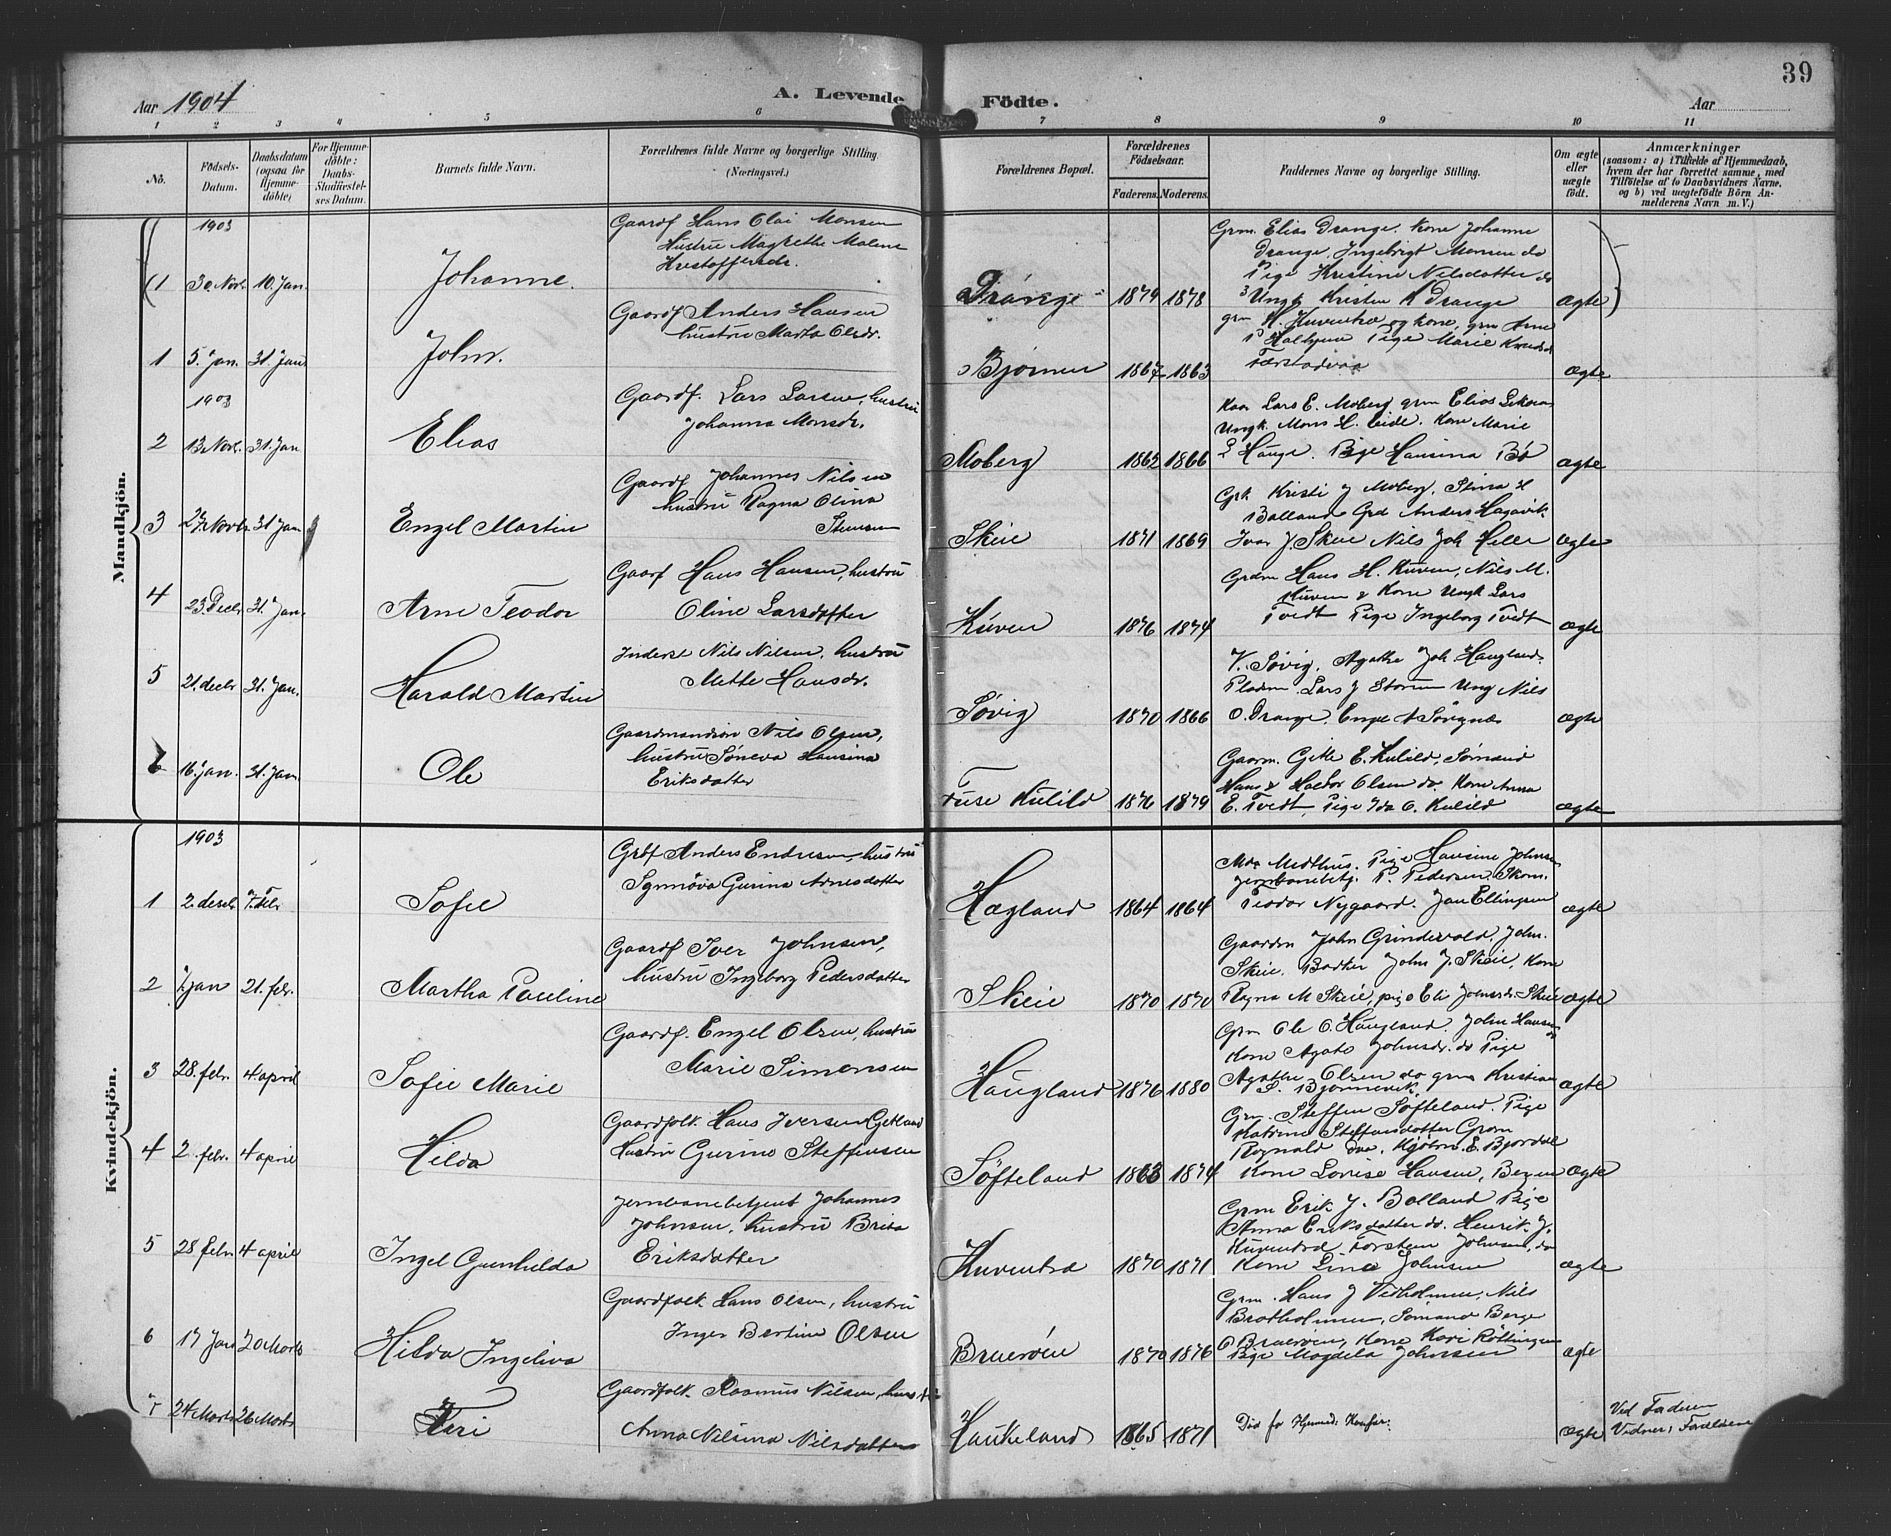 39
Aar 1904
A. Levende Födte.
Aar
1 2 3 4 5 6 7 8 9 10 11
No.
Födsels-Datum.
Daabsdatum (ogsaa for Hjemme-döbte)
For Hjemme-döbte: Daabs-Stadfæstel-ses Datum.
Barnets fulde Navn.
Forældrenes fulde Navne og borgerlige Stilling (Næringsvei.)
Forældrenes Bopæl.
Forældrenes Födselsaar.
Faderens. Moderens.
Faddernes Navne og borgerlige Stilling.
Om ægte eller uægte født.
Anmærkninger
(saasom: a) i Tilfælde af Hjemmedaab, hvem der har forrettet samme, med Tilföielse af to Daabsvidners Navne, og b) ved uegtefödte Börn An-melderens Navn m. V.)
Mandkjön.
1903
1 30 Novbr. 10. Jan. Johanne.
Gaardf Hans Olai Monsen
Hustru Magrethe Malene
Kristoffersdr.
Drange 1879 1878
Grm. Elias Drange. Kone Johanne
Drange, Ingebrigt Monsen do
Pige Kristine Nilsdatter do
Ungk Kristen K Drange
ægte
1 5. Jan. 31. Jan. John.
Gaardf Anders Hansen
hustru Marta Olsdr.
Bjørnen 1867 1863
grm H. Kuventræ og kone, grm Arne
Halhjem Pige Marie
ægte
1903
2 13 Novbr. 31. Jan Elias
Gaardf. Lars Larsen, hustru
Johanna Monsdr.
Moberg 1862 1866
Lars E. Moberg grm Elias
Ungk. Mons H. Eide. Kone Marie
L Hauge. Pige Hansina Bø
ægte
3 27. Novbr 31 Jan Engel Martin
Gaardf Johannes Nilsen
hustru Ragna Olina
Stensen
Skeie 1871 1869
Kristi J Moberg, Stina H
Bolland Anders Hagavik
Ivar J. Skeie Nils Joh Helle
ægte
4 23. Decbr 31. Jan. Arne Teodor
Gaarf Hans Hansen, hustru
Oline Larsdatter
Kuven 1876 1874
Grdm Hans H. Kuven, Nils M.
Kuven & Kone Ungk Lars
Tvedt Pige Ingeborg Tvedt
ægte
5 21. decbr 31. Jan. Harald Martin
Inderst Nils Nilsen, hustru
Mette Hansdr.
Søvig 1870 1866
V. Søvig, Agathe Joh Haugland.
Pladsm. Lars J Storum Ung Nils
O. Drange, Engel
ægte
6 16 Jan. 31. Jan Ole
Gaardmandsøn Nils Olsen,
hustru Søneva Hansina
Eriksdatter
Fuse Kulild 1876 1879
Gaarm. Gitle E. Kulild, Sømand
Hans & Haktor Olsen do. Kone Anna
E. Tvedt, Pige Ida O. Kulild
ægte
Kvindekjön.
1903
1 2. decbr 7. Febr Sofie
Grdf Anders Endresen, hustru
Synnøva Gurina Arnesdatter
Hægland 1864 1864
Midthus. Pige Hansine Johns
jernbanebetj. P. Pedersen, Skom.
Teodor Nygaard. Jan Ellingsen
ægte
2 7. Jan 21. febr. Martha Pauline
Gaardf Iver Johnsen,
hustru Ingeborg Pedersdatter
Skeie 1870 1870
Gaardm John Grindevold, John.
Skeie. Bødker John J. Skeie, kone
Ragna M Skeie, pige Eli Johnsdr. Skeie
ægte
3 28. febr. 4. april Sofie Marie
Gaardf. Engel Olsen, hustru
Marie Simonsen
Haugland 1876 1880
Grm Ole O. Haugland. John Hansen
Kone Agate Johnsdr. do Pige
Agathe Olsen do grm Kristian
S. Bjørnevik.
ægte
4 2. febr. 4 april Hilda
Gaardfolk. Hans Iversen Gjetland
Hustru Gurine Steffensen
Søfteland 1863 1874
Grm. Steffen Søfteland. Pige
Katrine Steffensdatter Grm
Rognald Kjøbm. E. Bjørdal
Kone Lovise Hansen, Bergen
ægte
5 28 febr 4 april Ingel Gunhilda
Jernbanebetjent Johannes
Johnsen, hustru Brita
Eriksdatter
Kuventræ 1870 1871
Grm Erik J. Bolland Pige
Anna Eriksdatter do. Henrik J.
Kuventræ Torsten Johnsen, do
Kone Lina Johnsen
ægte
6 17 Jan 20 Marts Hilda Ingeliva
Gaardfolk. Hans Olsen, hustru
Inger Bertine Olsen
Bruerøen 1870 1876
Grm. Hans J Vedholmen, Nils
Bratholmen, Sømand Berge
O Bruerøen, Kone Kari Røttingen
Pige Magdela Johnsen
ægte
7 24 Marts 26 Marts Kari
Gaardfolk Rasmus Nilsen, hustru
Anna Nilsina Nilsdatter
Haukeland 1865 1871
Død før Hjemmed. Konfir.
ægte
Ved Faderen
Vidner: Forældrene